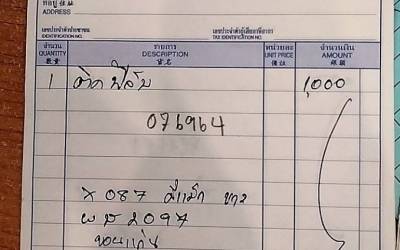 ที่อยู่ 住址
ADDRESS
เลขประจำตัวประชาชน เลขประจำตัวผู้เสียภาษีอากร
IDENTIFICATION NO. TAX IDENTIFICATION NO.
จำนวน รายการ หน่วยละ จำนวนเงิน
QUANTITY DESCRIPTION UNIT PRICE AMOUNT
數量 貨名 備註 銀額
1 ติดฟิล์ม 1,000
076964
X 087 ดีแม็ก ขาว
ผฉ 2097
ขอนแก่น